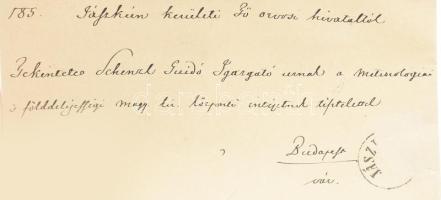 185. Jászkún kerületi Fő orvosi hivataltól
Tekintetes Schenzl Guidó Igazgató urnak a Meteorologiai
s földdelejességi magy. kir. központi intézetnek tisztelettel
Budapest
vár.
JÁSZ